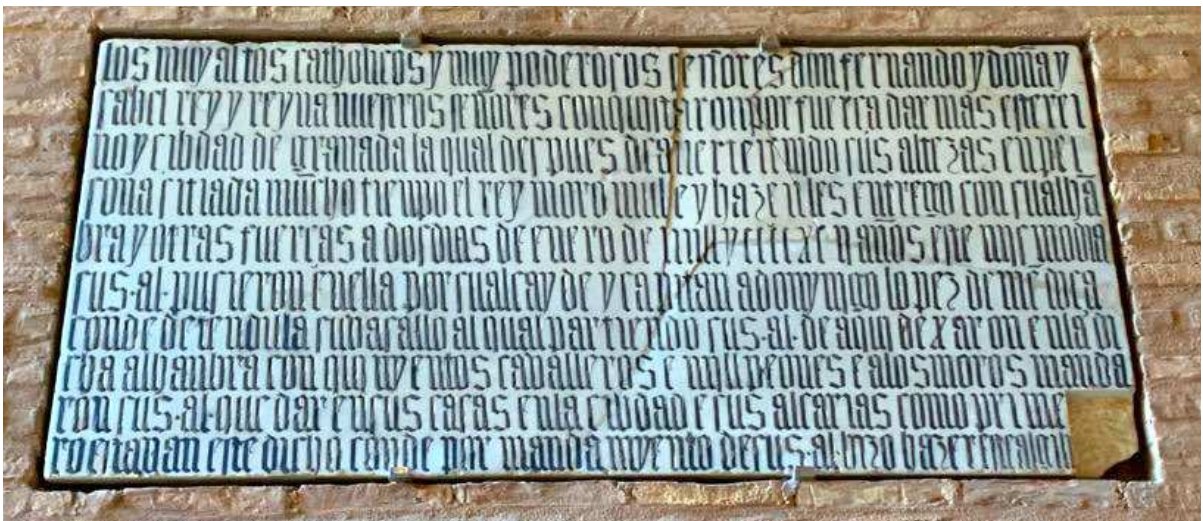 los muy altos catholicos y muy poderosos señores don fernando y doña y
sabel rey y reyna nuestros señores conquistaron por fuerca darmas este rei
no y cibdad de granada la qual despues de aver tenido sus altezas en per
sona sitiada mucho tiempo el rey moro muley hazen les entrego con su alhā
bra y otras fuercas a dos dias de enero de mill y cccc xc ii años este mismo dia
sus · al · pusieron en ella por su alcayde y capitan a don yñigo lopez de mēdoca
conde de tendilla su vasallo al qual partiendo sus · al · de aqui dexaron en la di
cha alhambra con quinientos cavalleros e mill peones e a los moros manda
ron sus · al · quedar en sus casas en la cibdad e sus alcarias como prime
ro estavan este dicho conde por mandamiento de sus · al · hizo hazer este algibe